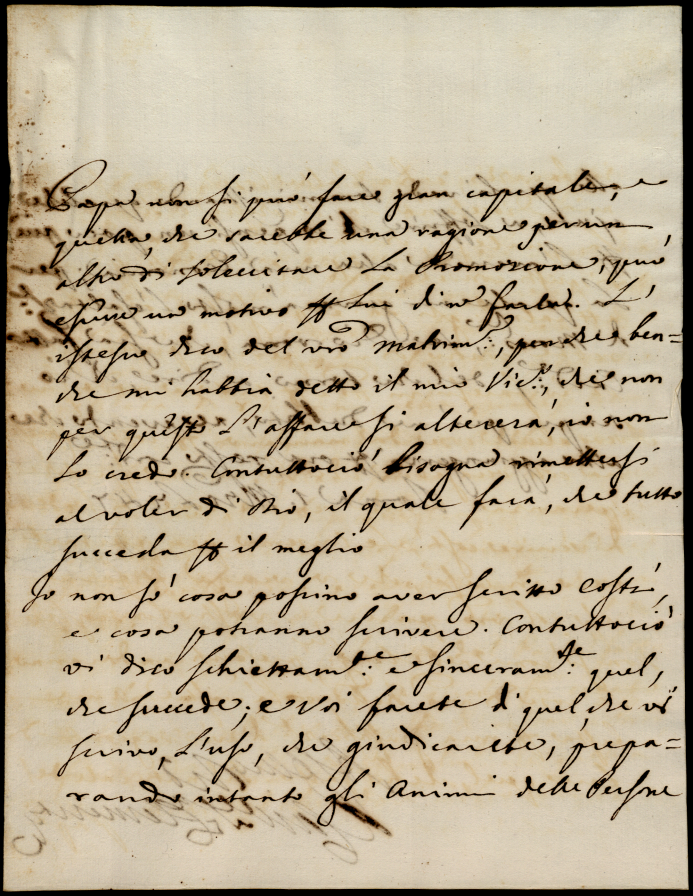 Papa non si può fare gran capitale, e
quella, che sarebbe una ragione per un
altro di sollecitare La Promozione, può
essere un motivo per Lui di nõ farla. L'
istesso dico del vrõ matrim.º, perche ben=
che mi habbia detto il mio Vic.º, che non
per questo L'affare si altererà, io non
Lo credo. Contuttociò bisogna rimettersi
al voler di Dio, il quale farà, che tutto
succeda per il meglio
Io non sò cosa possino aver scritto costì,
e cosa potranno scrivere. Contuttociò
vi dico schiettam.te e sinceram.te quel,
che succede; e Voi farete di quel, che vi
scrivo, L'uso, che giudicarete, prepa=
rando intanto gli Animi delle Persone